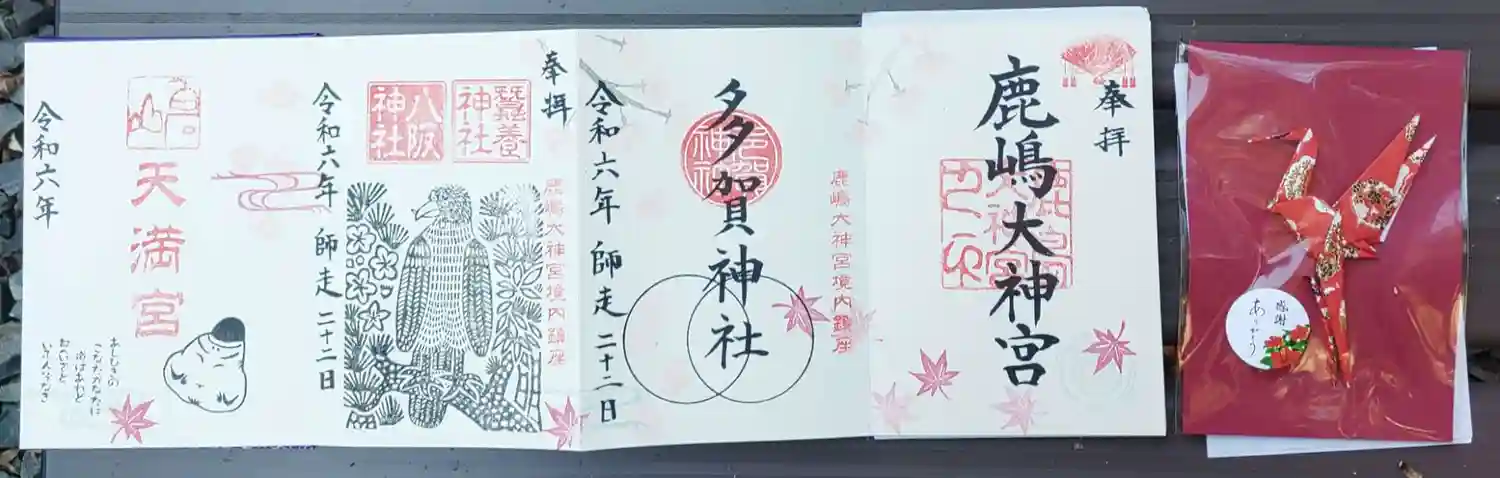 奉拝
鹿嶋大神宮
鹿嶋大神宮境内鎮座
多賀神社
令和六年 師走 二十二日
奉拝
鹿嶋大神宮境内鎮座
蠶養神社
八阪神社
令和六年 師走 二十二日
天満宮
令和六年
感謝
ありがとう